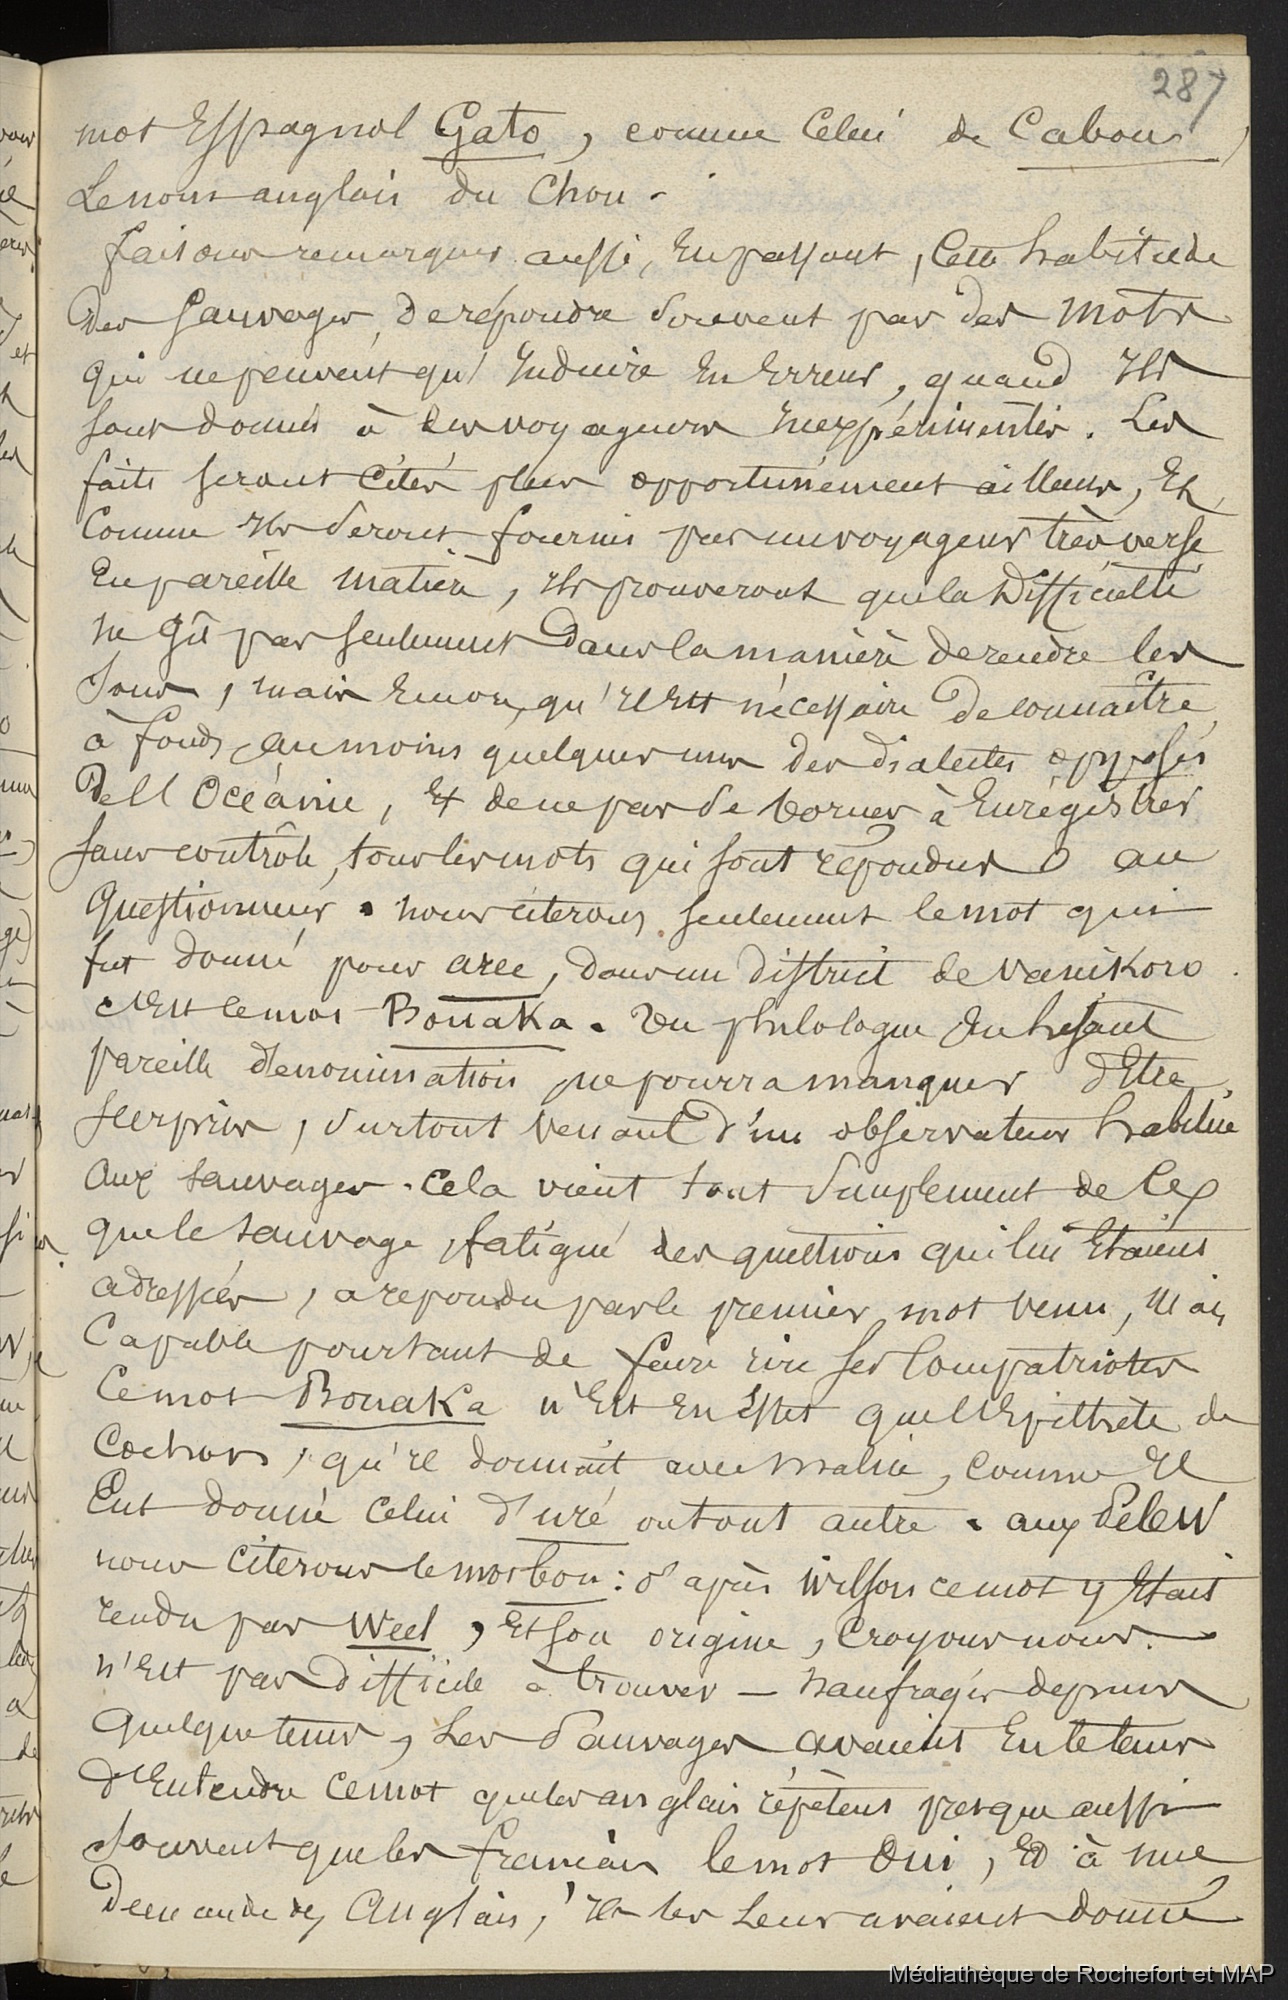 287
mot Espagnol Gato, comme celui de Cabou,
Le nom anglais du Chou.
faisons remarquer aussi, En passant, Cette habitude
Des Sauvages, De répondre Souvent par des Mots
qui ne peuvent qu'Induire En Erreur, quand Ils
sont donnés à des voyageurs Inexpérimentés. Les
faits seront Cités plus opportunément ailleurs, Et
Comme Ils Seront fournis par un voyageur très versé
En pareille matière, Ils prouveront que la Difficulté
ne Gît pas seulement Dans la manière de rendre les
Sons, mais Encore, qu'Il Est nécessaire De connaître
à fonds, au moins quelques uns des Dialectes opposés
De l'Océanie, Et de ne pas Se borner à Enrégistrer
sans contrôle, tous les mots qui sont répondus au
Questionneur. nous citerons seulement le mot qui
fut donné pour arec, dans un District de Vanikoro.
c'Est le mot Bouaka. Un philologue En lisant
pareille dénomination, ne pourra manquer d'Etre
surpris, Surtout Venant d'un observateur habitué
aux sauvages. Cela vient tout Simplement de Ce
que le sauvage, fatigué des questions qui lui Etaient
adressées, a repondu par le premier mot venu, Mais
Capable pourtant de faire rire ses Compatriotes
Ce mot Bouaka n'Est En Effet que l'Epithète de
Cochon, qu'Il donnait avec malice, comme Il
Eut donné celui d'uré ou tout autre. aux Pelew
nous citerons le mot bon: d'après Wilson ce mot y Etait
rendu par Weel, Et son origine, Croyons nous.
n'Est pas Difficile à trouver — naufragés depuis
Quelque tems, Les Sauvages avaient Eu le tems
D'Entendre Ce mot que les anglais répètent presque aussi
Souvent que les français le mot Oui, Et à une
Demande des Anglais, Ils les Leur avaient donné
Médiathèque de Rochefort et MAP